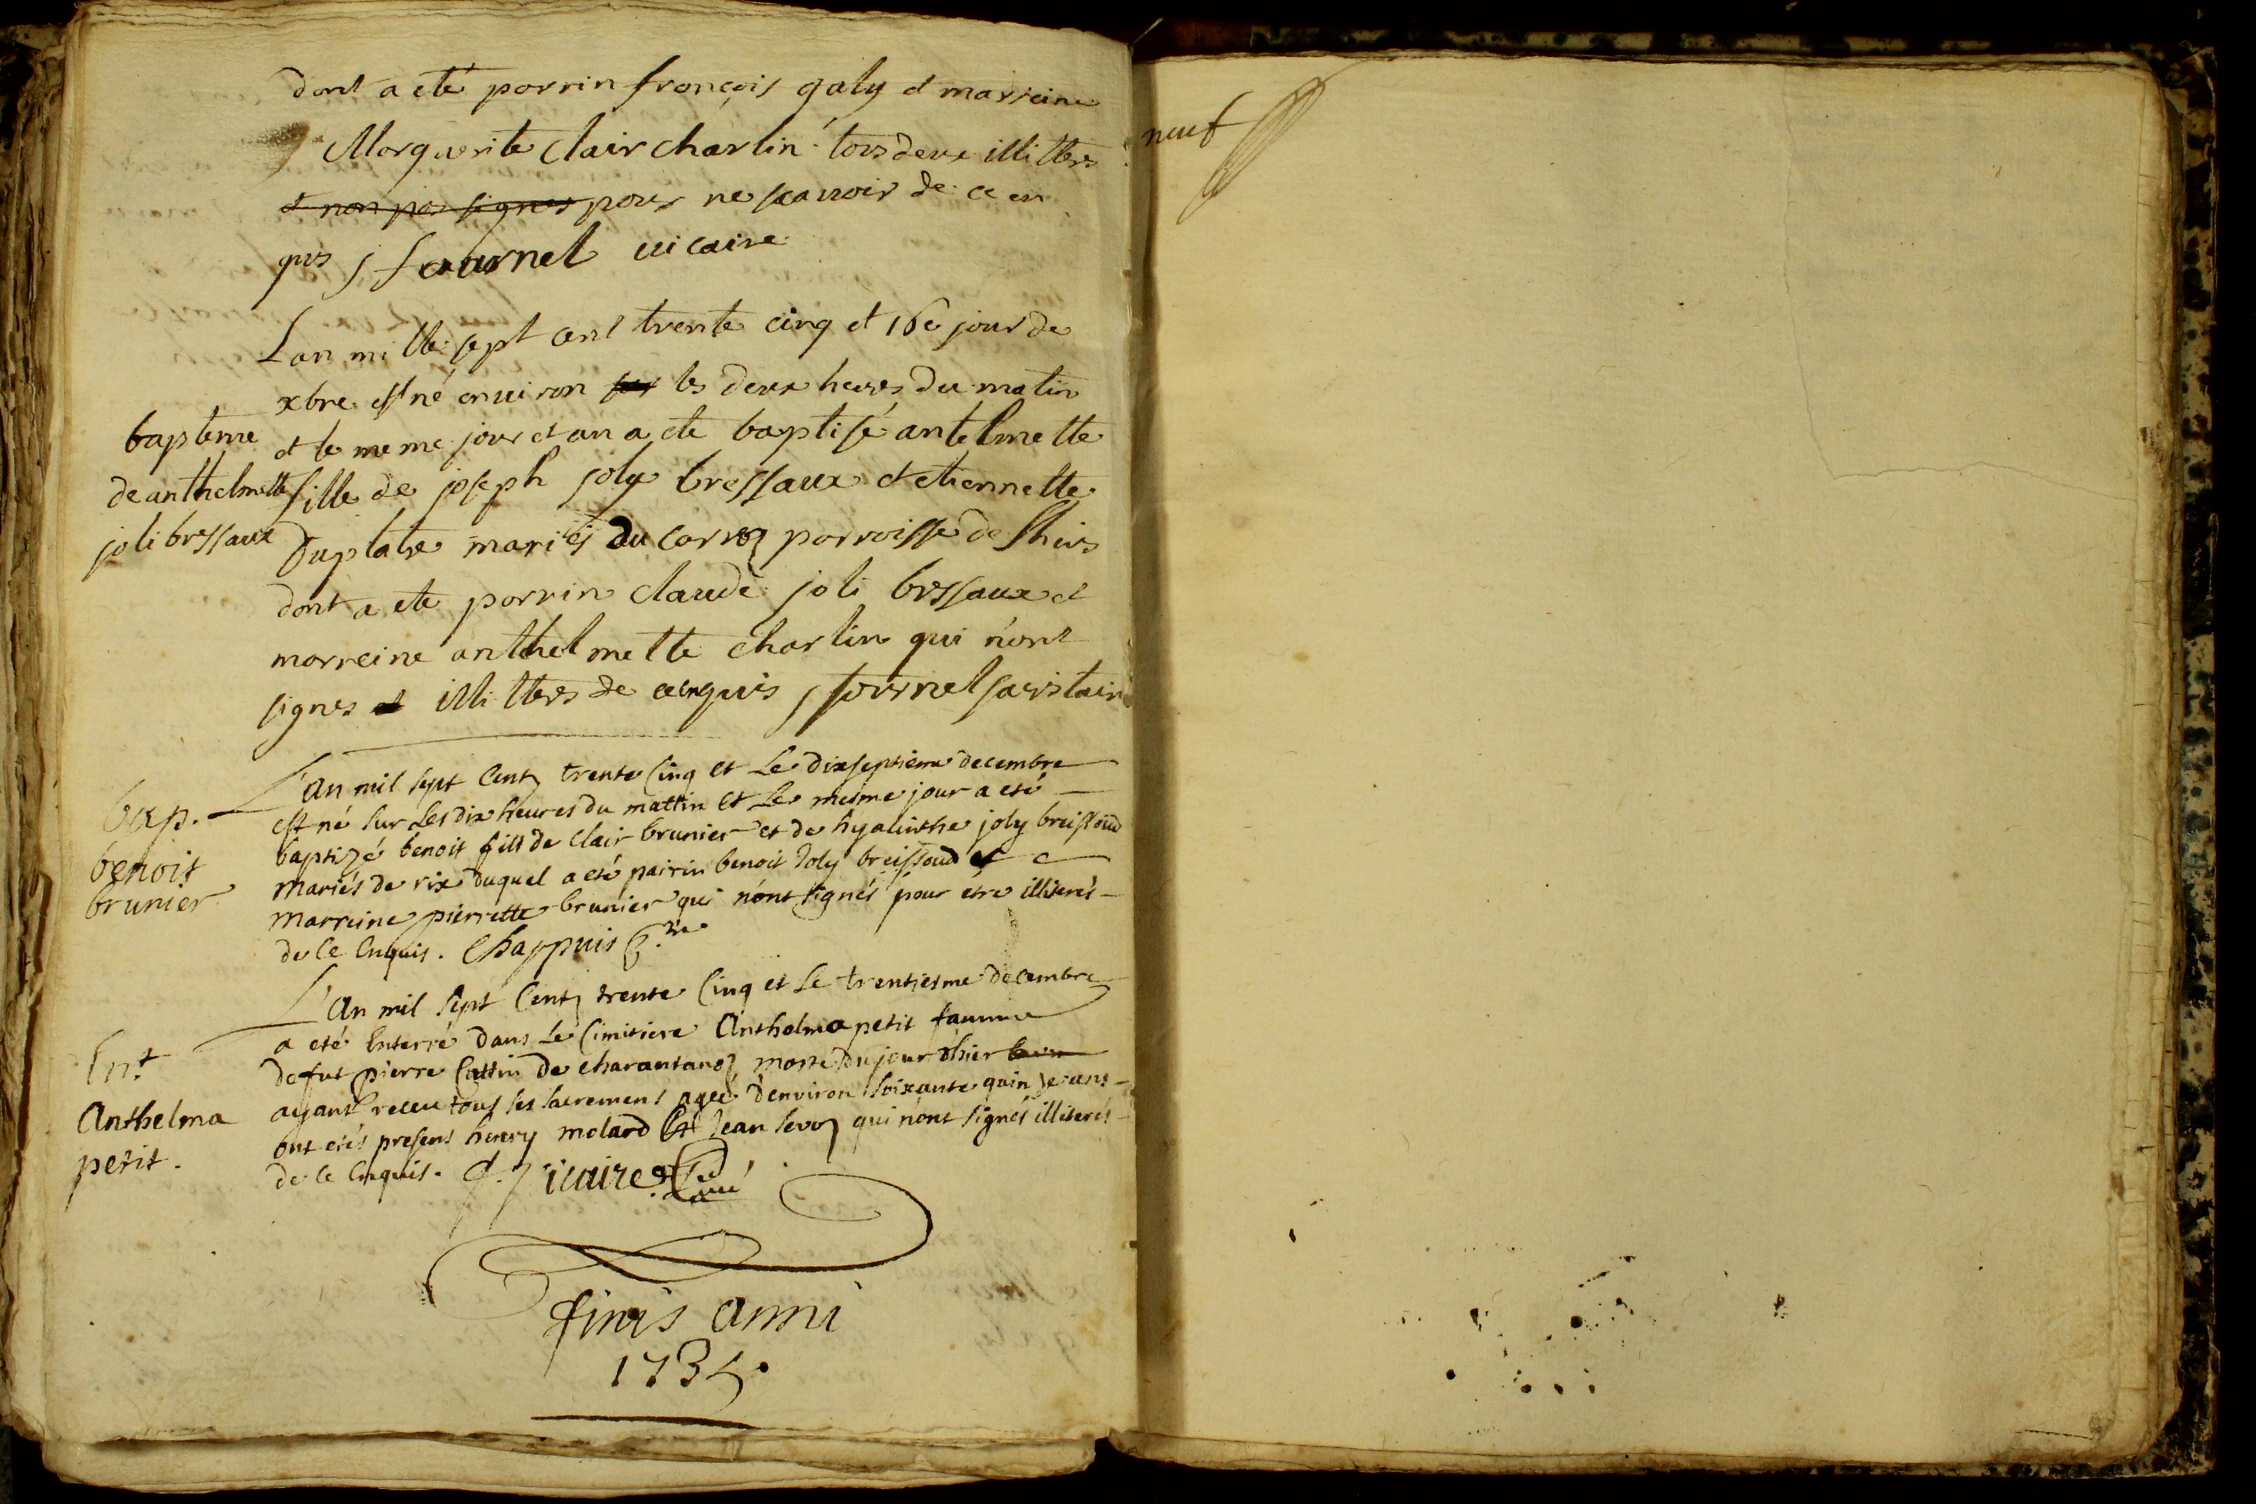 dont a eté porrin françois galy et marreine
Morguerite Clair charlin tous deux illitters
et non pas signes pour ne scauvoir de ce en
quis j fournel vicaire
Lan mille sept cent trente cinq et 16e jour de
xbre est né environ sur les deux heures du matin
et le meme jour et an a eté baptisé antelmette
fille de joseph joly bressaux et etiennette
Duplatre mariés du parroisse de
dont a ete porrin claude joli bressaux et
morreine anthelmette charlin qui n'ont
signes et illitters de cenquis j fournel
bapteme
de anthelmette
joli bressaux
L'an mil sept Cent trente Cinq et Le dixseptieme decembre
est né sur Les dix heures du mattin et Le mesme jour a eté
baptizé benoit fils de Clair brunier et de hyacinthe joly breissoud
mariés de rix duquel a eté pairin benoit Joly breissoud et
marreine pierrette brunier qui n'ont signés pour etre illiterés
de Ce Enquis. Chappuis
bap.
benoit
brunier
L'an mil sept Cent trente Cinq et Le trentiesme decembre
a eté Enterré dans Le Cimitiere Anthelma petit famme
de fut pierre de charantanoz morte du jour d'hier
ayant receu tous ses sacremens agée d'environ soixante quinze ans
ont etés presens henry molard Et Jean qui n'ont signés illiterés
de Ce Enquis.
Ent
Anthelma
petit.
finis anni
1735.
neuf